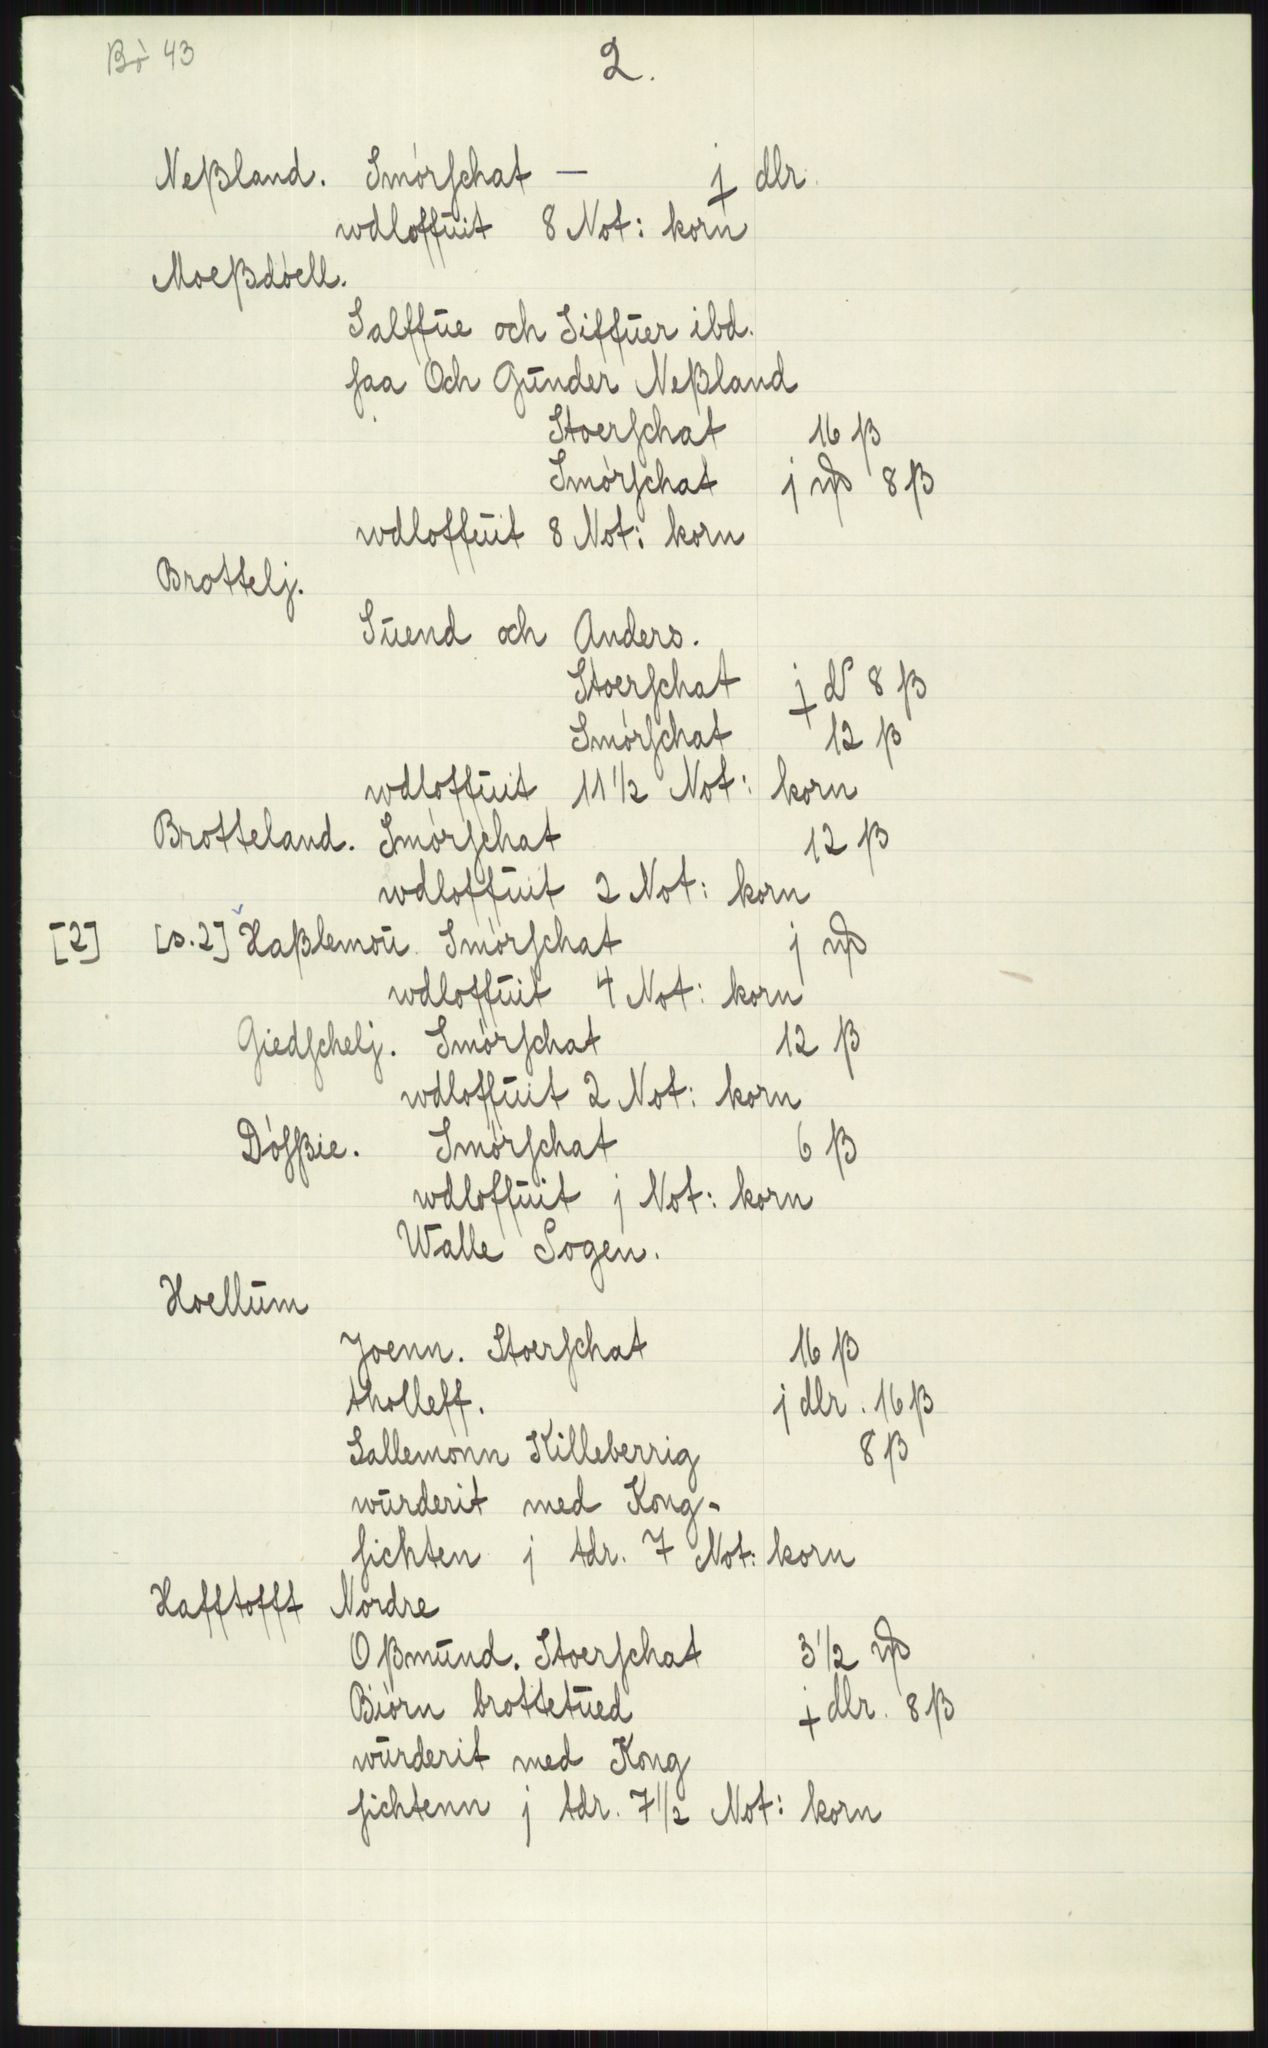 Bò 43
2.
Neßland. Smòrschat — j dlr.
wdloffūit 8 Not: korn
Moeßdòell.
Salffūe och Siffūer ibd.
saa Och Gūnder Neßland
Stoerschat 16 β
Smòrschat j 8 β
wdloffūit 8 Not: korn
Brottelj.
Sūend och Anders.
Stoerschat j d 8 β
Smòrschat 12 β
wdloffūit 11 1/2 Not: korn
Brotteland. Smòrschat 12 β
wdloffūit 2 Not: korn
[2] [s.2] Haßlemoū Smòrschat j
wdloffūit 4 Not: korn
Giedschelj. Smòrschat 12 β
wdloffūit 2 Not: korn
Dòsßie. Smòrschat 6 β
wdloffūit j Not: korn
Walle Sogen.
Hoellūm
Joenn. Stoerschat 16 β
tholleff. j dlr. 16 β
Sallemonn Killeberrig 8 β
wūrderit med Kong-
sichten j tdr. 7 Not: korn
Hafftofft Nordre
Oßmūnd. Stoerschat 3 1/2
Biòrn brottetūed j dlr. 8 β
wūrderit med Kong
sichtenn j tdr. 7 1/2 Not: korn